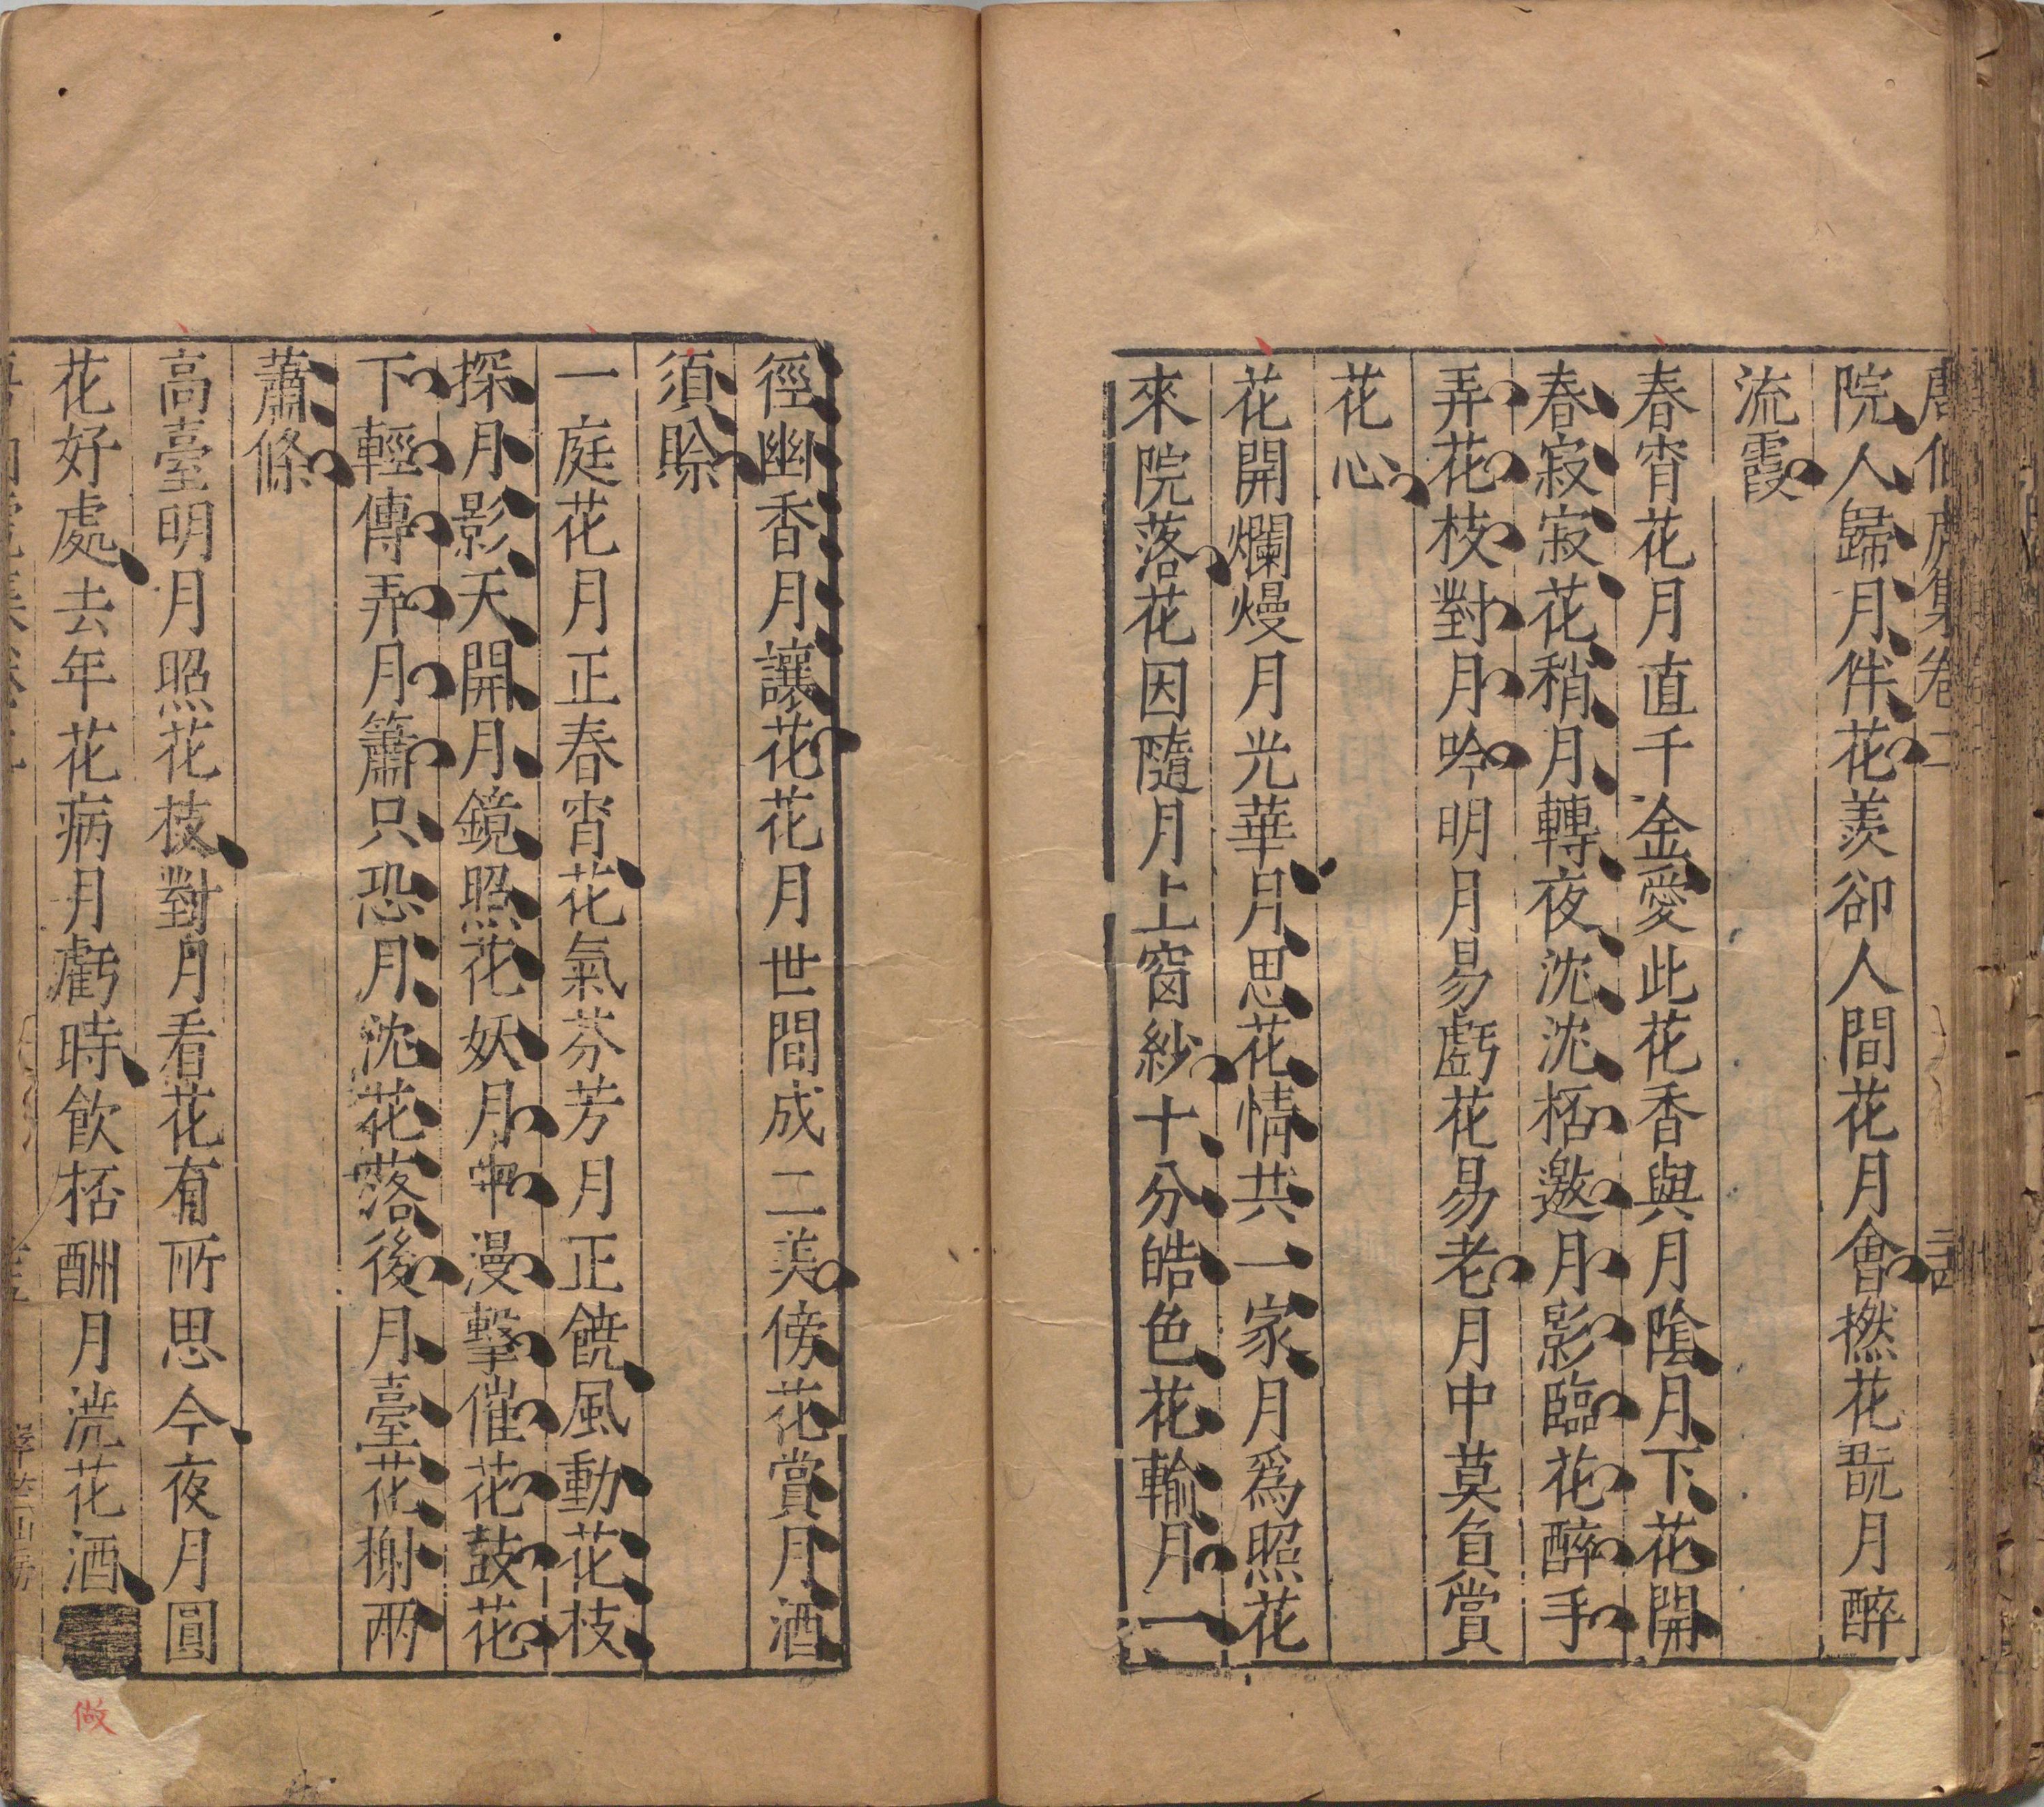 院人歸月伴花羨卻人間花月會撚花翫月醉
流霞
春宵花月直千金愛此花香與月陰月下花開
春寂寂花稍月轉夜沈沈桮邀月影臨花醉手
弄花枝對月吟明月易虧花易老月中莫負賞
花心
花開爛熳月光華月思花情共一家月爲照花
來院落花因隨月上窗紗十分皓色花輸月一
徑幽香月讓花花月世間成二美傍花賞月酒
須賒
一庭花月正春宵花氣芬芳月正饒風動花枝
探月影天開月鏡照花妖月中漫擊催花鼓花
下輕傳弄月簫只恐月沈花落後月臺花榭兩
蕭條
高臺明月照花枝對月看花有所思今夜月圓
花好處去年花病月虧時飲桮酬月澆花酒
做